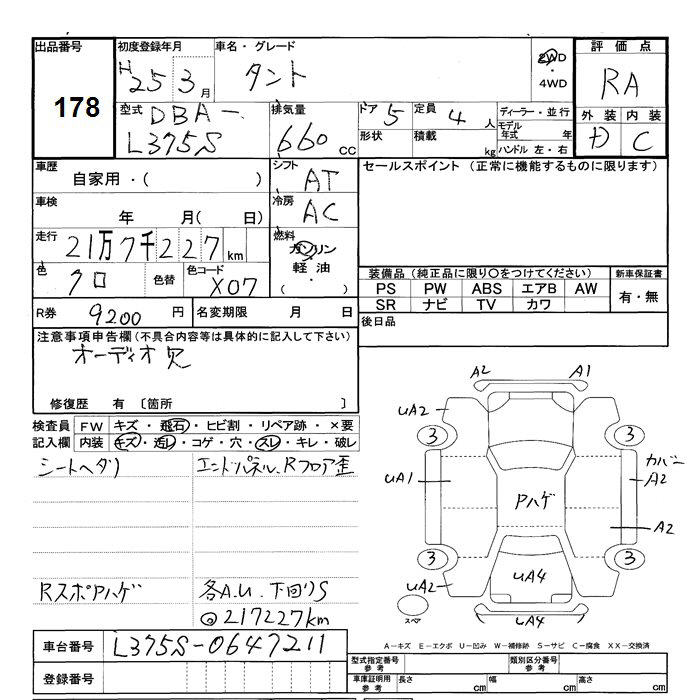 出品番号 初度登録年月 車名・グレード 評価点
178 H25 3月 タント 2WD・4WD RA
型式 DBA- 排気量 ドア 5 定員 4人 ディーラー・並行 外装 内装
L375S 660cc 形状 積載 kg モデル年式 年 ハンドル 左・右 D C
車歴 シフト セールスポイント (正常に機能するものに限ります)
自家用・( ) AT
車検 冷房
年 月( 日) AC
走行 21万7千227km 燃料 ガソリン
色 クロ 色替 色コード X07 軽油・( ) 装備品(純正品に限り○をつけてください) 新車保証書
PS PW ABS エアB AW 有・無
SR ナビ TV カワ
R券 9200円 名変期限 月 日 後日品
注意事項申告欄(不具合内容等は具体的に記入して下さい)
オーディオ欠
修復歴 有 〔箇所 〕
検査員 FW キズ・飛石・ヒビ割・リペア跡・×要
記入欄 内装 キズ・汚レ・コゲ・穴・スレ・キレ・破レ
シートヘタリ エンドパネル、Rフロア歪
Rスポアハゲ 各A.U. 下回りS
◎217227km
A2 A1
UA2
3 3
カバー
UA1 A2
Pハゲ
A2
3 3
UA4
UA2
スペア UA4
A-キズ E-エクボ U-凹み W-補修跡 S-サビ C-腐食 XX-交換済
車台番号 L375S-0647211
登録番号
型式指定番号 参考 類別区分番号 参考
車庫証明用 参考 長さ cm 幅 cm 高さ cm